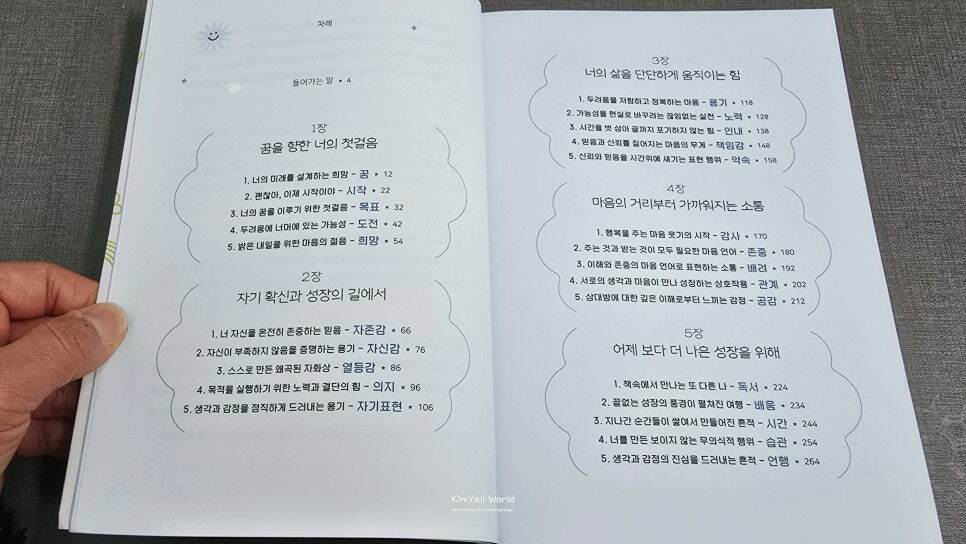 차례
들어가는 말 • 4
1장
꿈을 향한 너의 첫걸음
1. 너의 미래를 설계하는 희망 - 꿈 • 12
2. 괜찮아, 이제 시작이야 - 시작 • 22
3. 너의 꿈을 이루기 위한 첫걸음 - 목표 • 32
4. 두려움에 너머에 있는 가능성 - 도전 • 42
5. 밝은 내일을 위한 마음의 젊음 - 희망 • 54
2장
자기 확신과 성장의 길에서
1. 너 자신을 온전히 존중하는 믿음 - 자존감 • 66
2. 자신이 부족하지 않음을 증명하는 용기 - 자신감 • 76
3. 스스로 만든 왜곡된 자화상 - 열등감 • 86
4. 목적을 실행하기 위한 노력과 결단의 힘 - 의지 • 96
5. 생각과 감정을 정직하게 드러내는 용기 - 자기표현 • 106
3장
너의 삶을 단단하게 움직이는 힘
1. 두려움을 저항하고 정복하는 마음 - 용기 • 118
2. 가능성을 현실로 바꾸려는 끊임없는 실천 - 노력 • 128
3. 시간을 벗 삼아 끝까지 포기하지 않는 힘 - 인내 • 138
4. 믿음과 신뢰를 짊어지는 마음의 무게 - 책임감 • 148
5. 신뢰와 믿음을 시간위에 새기는 표현 행위 - 약속 • 158
4장
마음의 거리부터 가까워지는 소통
1. 행복을 주는 마음 웃기의 시작 - 감사 • 170
2. 주는 것과 받는 것이 모두 필요한 마음 언어 - 존중 • 180
3. 이해와 존중의 마음 언어로 표현하는 소통 - 배려 • 192
4. 서로의 생각과 마음이 만나 성장하는 상호작용 - 관계 • 202
5. 상대방에 대한 깊은 이해로부터 느끼는 감정 - 공감 • 212
5장
어제 보다 더 나은 성장을 위해
1. 책속에서 만나는 또 다른 나 - 독서 • 224
2. 끝없는 성장의 풍경이 펼쳐진 여행 - 배움 • 234
3. 지나간 순간들이 쌓여서 만들어진 흔적 - 시간 • 244
4. 너를 만든 보이지 않는 무의식적 행위 - 습관 • 254
5. 생각과 감정의 진심을 드러내는 흔적 - 언행 • 264
KimYell World